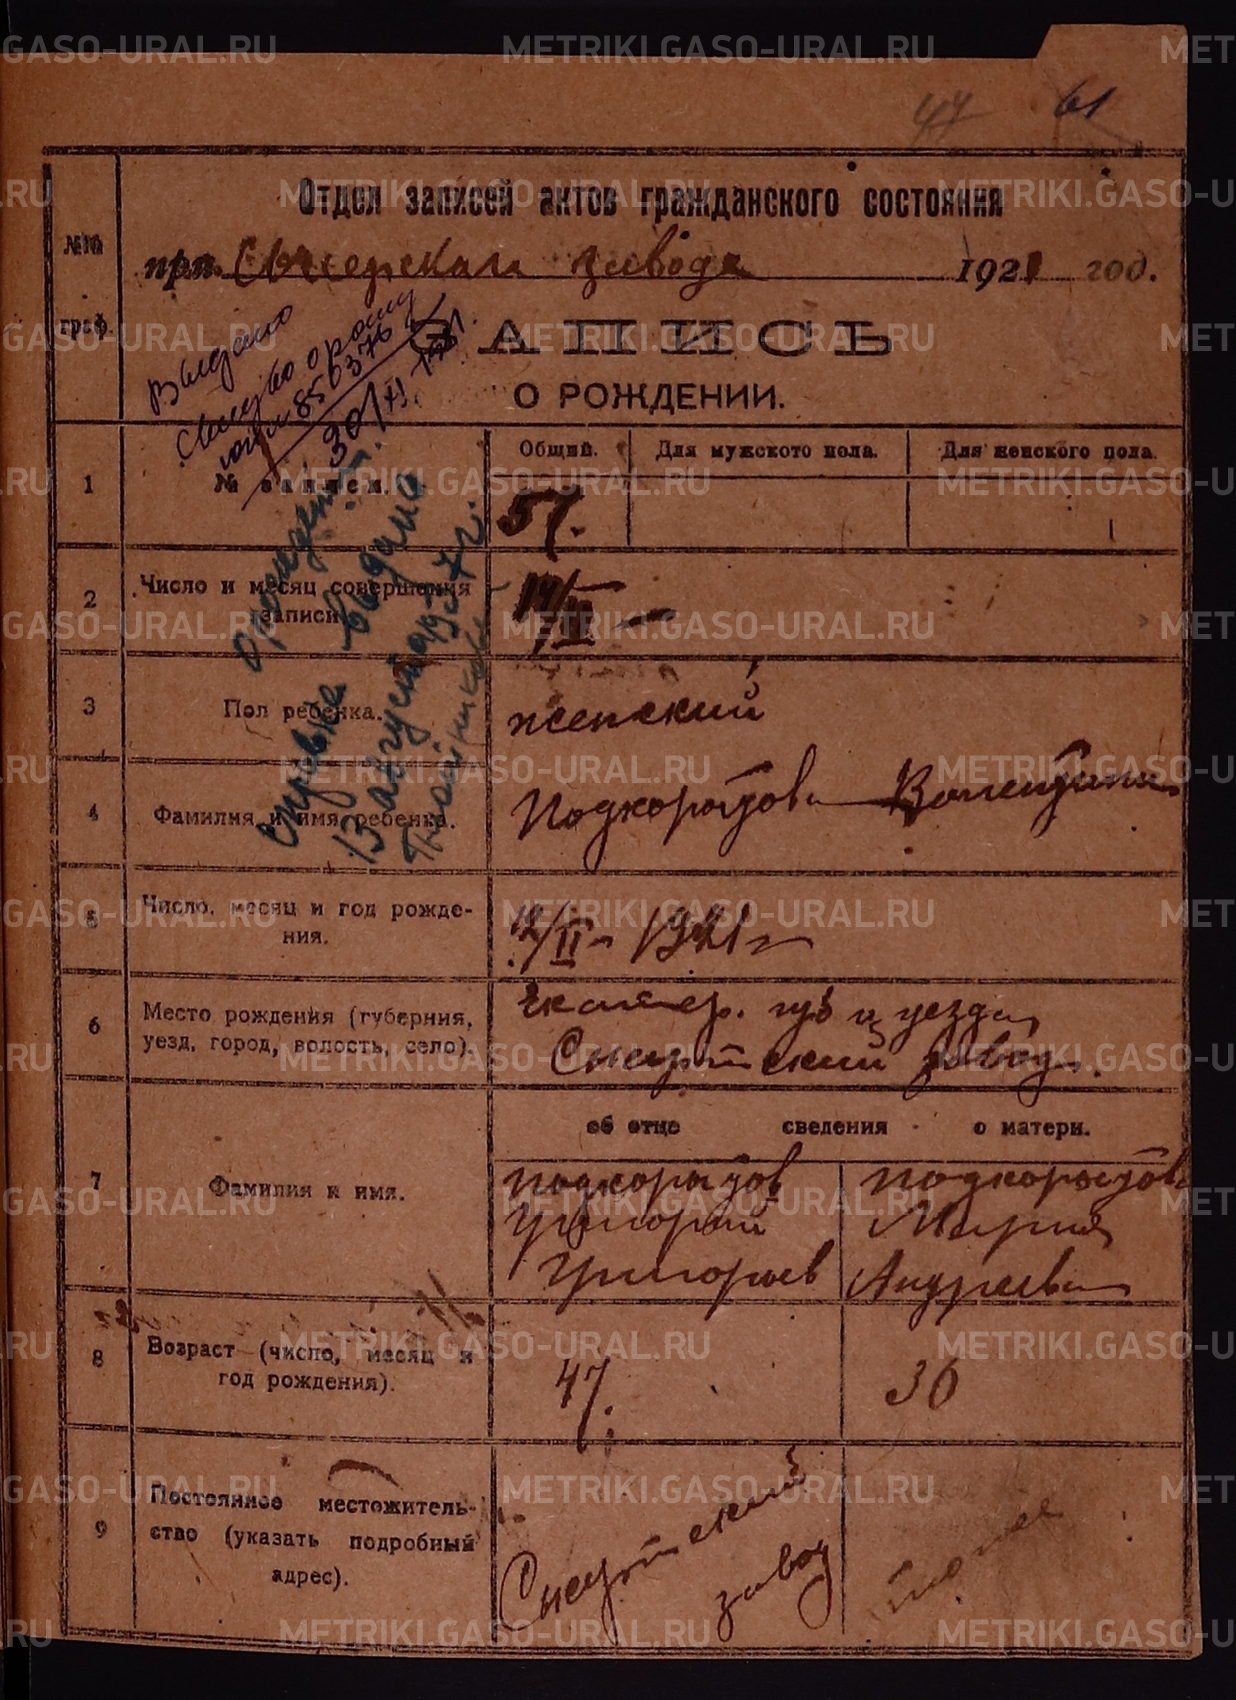 METRIKI.GASO-URAL.RU
47 61
Отдел записей актов гражданского состояния
№№ граф.
при Сысертском заводе 1921 год.
ЗАПИСЬ
О РОЖДЕНИИ.
Выдано
30/XI.
Общий. Для мужского пола. Для женского пола.
1 № записи. 57.
Справка о рождении выдана
13 августа 1937г.
2 Число и месяц совершения
записи 14/II
3 Пол ребенка. женский
4 Фамилия и имя ребенка. Подкорытова Валентина
5 Число, месяц и год рожде-
ния. 12/II - 1921 г
6 Место рождения (губерния,
уезд, город, волость, село). Екатер. губ и уезда
Сысертский завод.
об отце сведения о матери.
7 Фамилия и имя.
Подкорытов Григорий Григорьев
Подкорытова Мария Андреевна
8 Возраст (число, месяц и
год рождения). 47. 36
9 Постоянное местожитель-
ство (указать подробный
адрес).
Сысертский завод